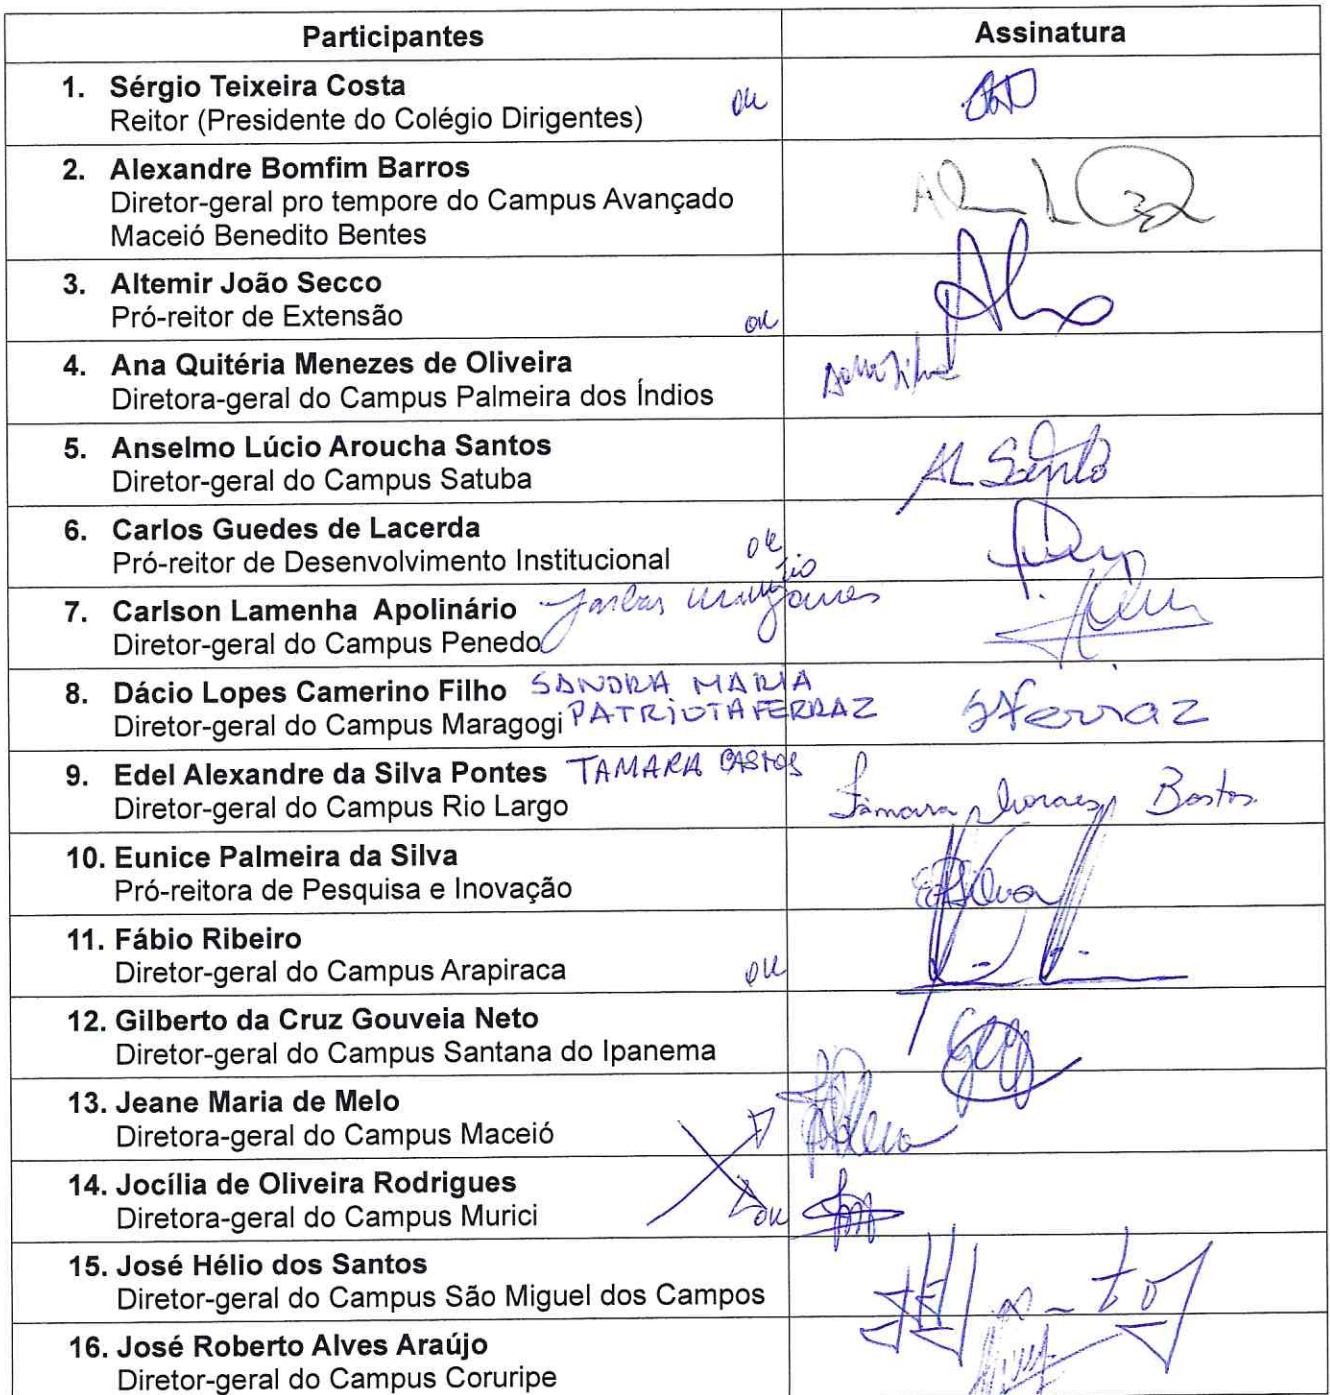 Participantes Assinatura
1. Sérgio Teixeira Costa
Reitor (Presidente do Colégio Dirigentes) ok
2. Alexandre Bomfim Barros
Diretor-geral pro tempore do Campus Avançado
Maceió Benedito Bentes
3. Altemir João Secco
Pró-reitor de Extensão ok
4. Ana Quitéria Menezes de Oliveira
Diretora-geral do Campus Palmeira dos Índios
5. Anselmo Lúcio Aroucha Santos
Diretor-geral do Campus Satuba AL Santos
6. Carlos Guedes de Lacerda
Pró-reitor de Desenvolvimento Institucional ok
7. Carlson Lamenha Apolinário
Diretor-geral do Campus Penedo
8. Dácio Lopes Camerino Filho SANDRA MARIA
Diretor-geral do Campus Maragogi PATRIOTA FERRAZ SFerraz
9. Edel Alexandre da Silva Pontes TAMARA BASTOS
Diretor-geral do Campus Rio Largo Tâmara Moraes Bastos
10. Eunice Palmeira da Silva
Pró-reitora de Pesquisa e Inovação EPSilva
11. Fábio Ribeiro
Diretor-geral do Campus Arapiraca ok
12. Gilberto da Cruz Gouveia Neto
Diretor-geral do Campus Santana do Ipanema
13. Jeane Maria de Melo
Diretora-geral do Campus Maceió
14. Jocília de Oliveira Rodrigues
Diretora-geral do Campus Murici ok
15. José Hélio dos Santos
Diretor-geral do Campus São Miguel dos Campos
16. José Roberto Alves Araújo
Diretor-geral do Campus Coruripe